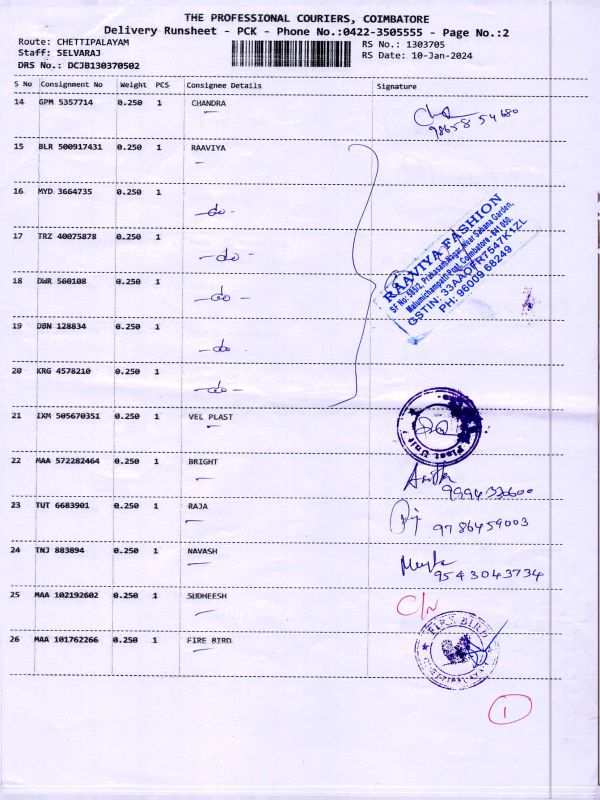 THE PROFESSIONAL COURIERS, COIMBATORE
Delivery Runsheet - PCK - Phone No.:0422-3505555 - Page No.:2
Route: CHETTIPALAYAM RS No.: 1303705
Staff: SELVARAJ RS Date: 10-Jan-2024
DRS No.: DCJB130370502
S No Consignment No Weight PCS Consignee Details Signature
14 GPM 5357714 0.250 1 CHANDRA
15 BLR 500917431 0.250 1 RAAVIYA
16 MYD 3664735 0.250 1
-do-
17 TRZ 40075878 0.250 1
-do-
18 DWR 560108 0.250 1
-do-
19 DBN 128834 0.250 1
-do-
20 KRG 4578210 0.250 1
-do-
RAAVIYA FASHION
GSTIN: 33AAOFR7547K1ZL
PH: 96009 68249
21 IXM 505670351 0.250 1 VEL PLAST
Plast Unit
22 MAA 572282464 0.250 1 BRIGHT
23 TUT 6683901 0.250 1 RAJA
9786459003
24 TNJ 883894 0.250 1 NAVASH
9543043734
25 MAA 102192602 0.250 1 SUDHEESH
C/N
26 MAA 101762266 0.250 1 FIRE BIRD
FIRE BIRD
CHETTIPALAYAM
1